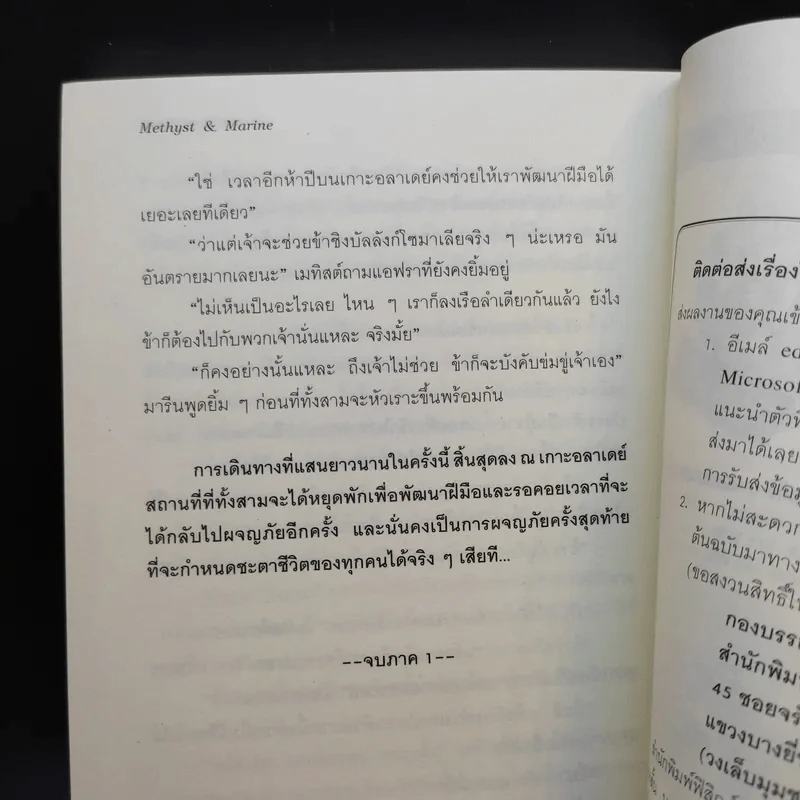 Methyst & Marine
"ใช่ เวลาอีกห้าปีบนเกาะอลาเดย์คงช่วยให้เราพัฒนาฝีมือได้
เยอะเลยทีเดียว"
"ว่าแต่เจ้าจะช่วยข้าชิงบัลลังก์โซมาเลียจริง ๆ น่ะเหรอ มัน
อันตรายมากเลยนะ" เมทิสต์ถามแอฟราที่ยังคงยิ้มอยู่
"ไม่เห็นเป็นอะไรเลย ไหน ๆ เราก็ลงเรือลำเดียวกันแล้ว ยังไง
ข้าก็ต้องไปกับพวกเจ้านั่นแหละ จริงมั้ย"
"ก็คงอย่างนั้นแหละ ถึงเจ้าไม่ช่วย ข้าก็จะบังคับข่มขู่เจ้าเอง"
มารีนพูดยิ้ม ๆ ก่อนที่ทั้งสามจะหัวเราะขึ้นพร้อมกัน
การเดินทางที่แสนยาวนานในครั้งนี้ สิ้นสุดลง ณ เกาะอลาเดย์
สถานที่ที่ทั้งสามจะได้หยุดพักเพื่อพัฒนาฝีมือและรอคอยเวลาที่จะ
ได้กลับไปผจญภัยอีกครั้ง และนั่นคงเป็นการผจญภัยครั้งสุดท้าย
ที่จะกำหนดชะตาชีวิตของทุกคนได้จริง ๆ เสียที...
--จบภาค 1--
ติดต่อส่งเรื่อง
ส่งผลงานของคุณเข้
1. อีเมล์ ed
Microsof
แนะนำตัว
ส่งมาได้เลย
การรับส่งข้อมู
2. หากไม่สะดวก
ต้นฉบับมาทาง
(ขอสงวนสิทธิ์ใ
กองบรรณ
สำนักพิม
45 ซอยจรั
แขวงบางยี่
(วงเล็บมุมซ